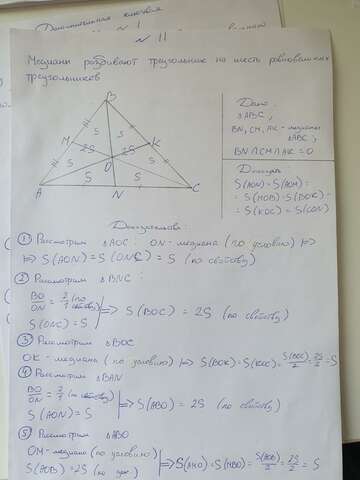 Дополнительная
№ 11
Медианы разбивают треугольник на шесть равновеликих
треугольников
B
M
K
S
S
S
2S
S
O
S
S
A
N
C
Дано:
△ABC,
BN, CM, AK - медианы
△ABC,
BN∩CM∩AK = O
Доказать:
S(AON) = S(AOM) =
= S(MOB) = S(BOK) =
= S(KOC) = S(CON)
Доказательство:
① Рассмотрим △AOC: ON - медиана (по условию) ⟹
⟹ S(AON) = S(ONC) = S (по свойству)
② Рассмотрим △BNC:
BO/ON = 2/1 (по свойству)
S(ONC) = S
⟹ S(BOC) = 2S (по свойству)
③ Рассмотрим △BOC
OK - медиана (по условию) ⟹ S(BOK) = S(KOC) = S(BOC)/2 = 2S/2 = S
④ Рассмотрим △BAN
BO/ON = 2/1 (по свойству)
S(AON) = S
⟹ S(ABO) = 2S (по свойству)
⑤ Рассмотрим △ABO
OM - медиана (по условию)
S(AOB) = 2S (по
⟹ S(AMO) = S(MBO) = S(AOB)/2 = 2S/2 = S